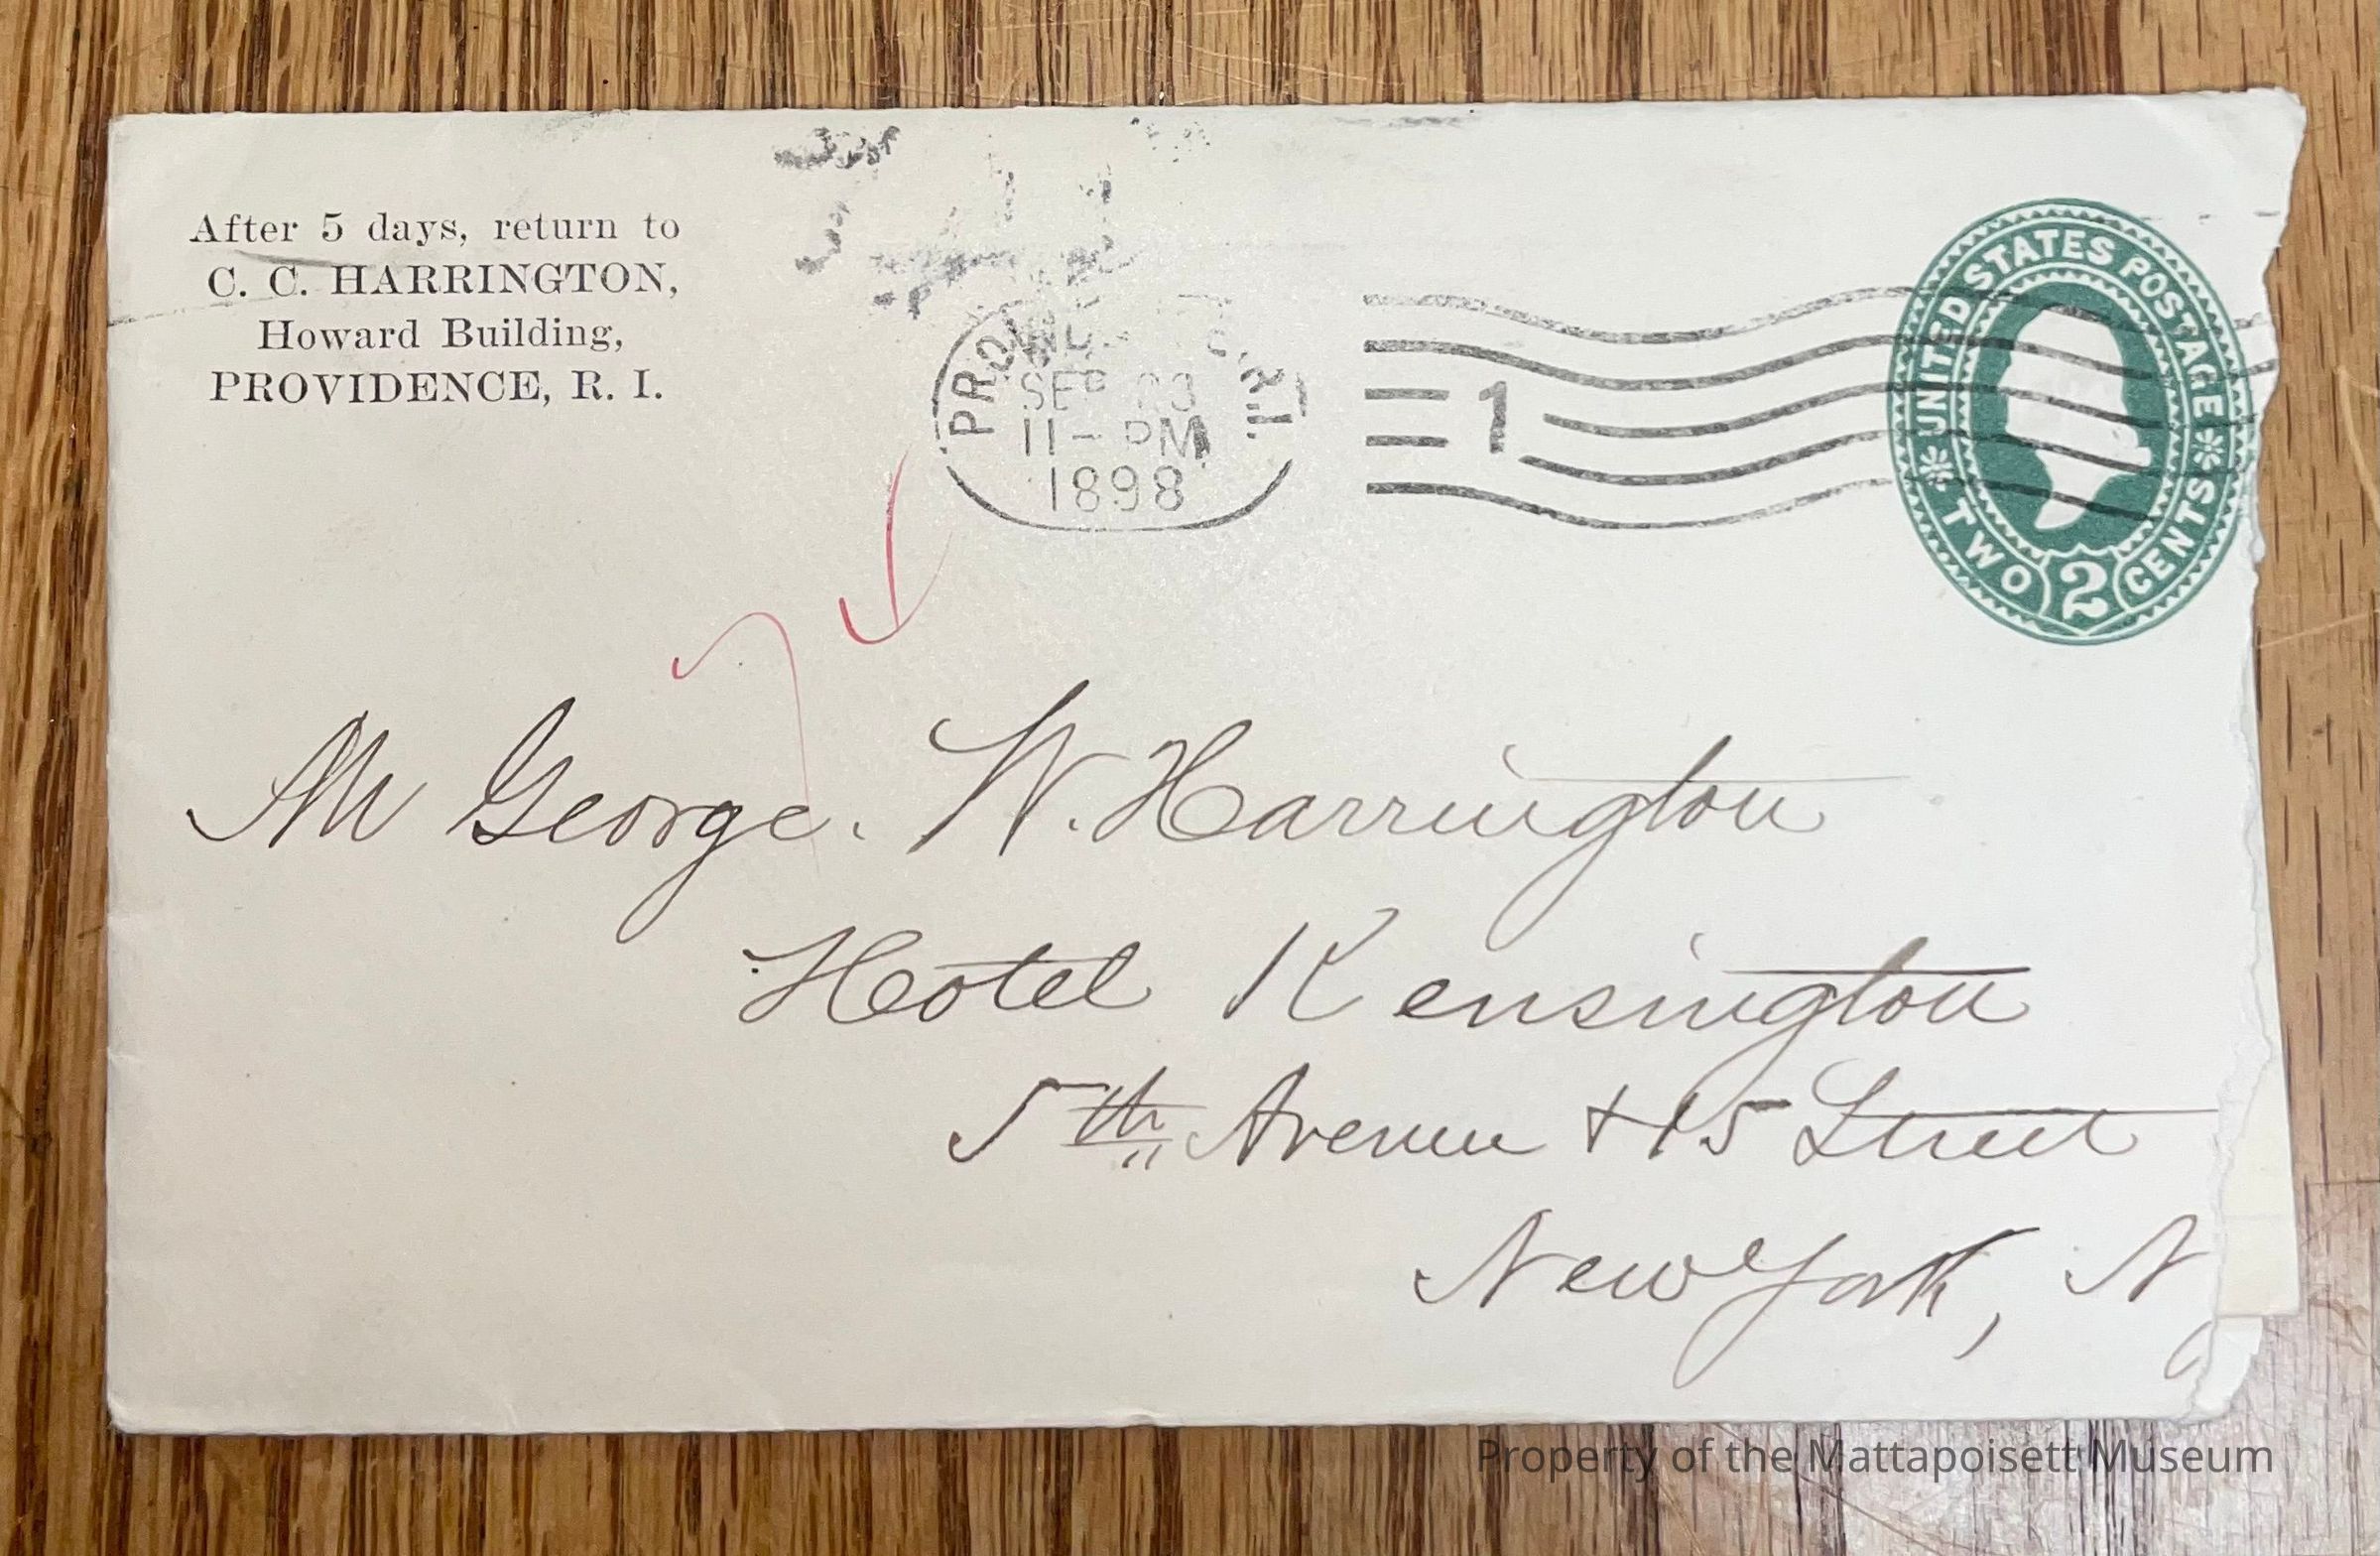 After 5 days, return to
C. C. HARRINGTON,
Howard Building,
PROVIDENCE, R. I.
SEP 23
11 - PM
1898
1
UNITED STATES POSTAGE
TWO 2 CENTS
Mr George. W. Harrington
Hotel Kensington
5th Avenue + 15 Street
New York, N
Property of the Mattapoisett Museum